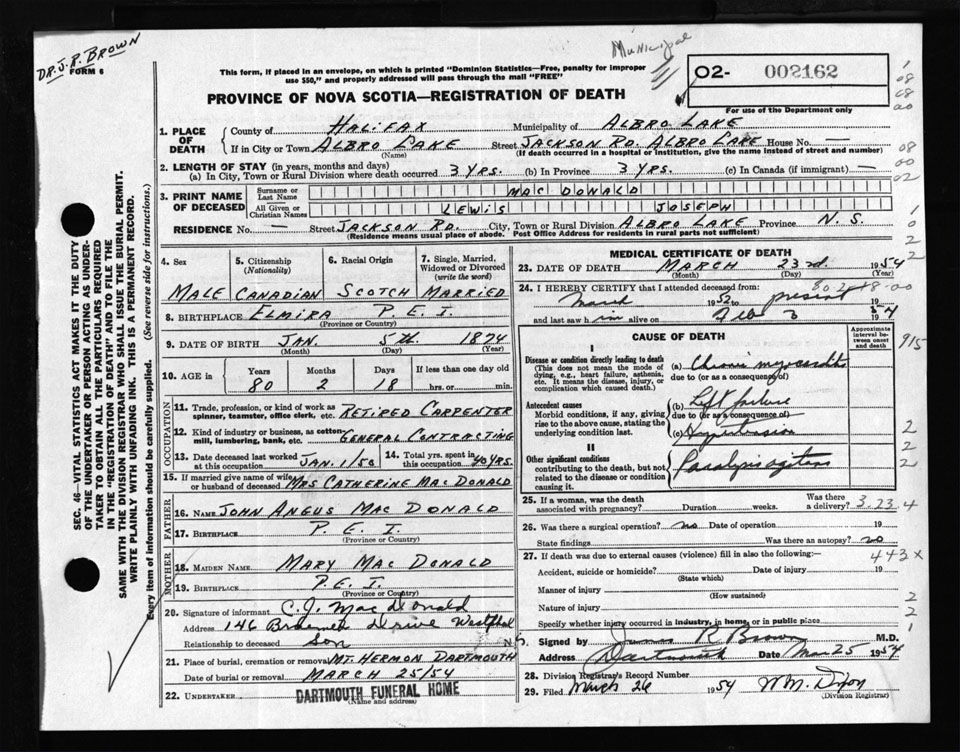 DR. J. R. BROWN
FORM 6
Municipal
This form, if placed in an envelope, on which is printed "Dominion Statistics—Free, penalty for improper
use $50," and properly addressed will pass through the mail "FREE"
02- 002162
For use of the Department only
PROVINCE OF NOVA SCOTIA—REGISTRATION OF DEATH
1. PLACE OF DEATH
County of HALIFAX Municipality of ALBRO LAKE
If in City or Town ALBRO LAKE Street JACKSON RD. ALBRO LAKE House No. —
(Name) (If death occurred in a hospital or institution, give the name instead of street and number)
2. LENGTH OF STAY (in years, months and days)
(a) In City, Town or Rural Division where death occurred 3 YRS. (b) In Province 3 YRS. (c) In Canada (if immigrant) —
3. PRINT NAME OF DECEASED
Surname or Last Name MAC DONALD
All Given or Christian Names LEWIS JOSEPH
RESIDENCE No. — Street JACKSON RD. City, Town or Rural Division ALBRO LAKE Province N.S.
(Residence means usual place of abode. Post Office Address for residents in rural parts not sufficient)
4. Sex MALE
5. Citizenship (Nationality) CANADIAN
6. Racial Origin SCOTCH
7. Single, Married, Widowed or Divorced (write the word) MARRIED
8. BIRTHPLACE ELMIRA P.E.I.
(Province or Country)
9. DATE OF BIRTH JAN. 5th. 1874
(Month) (Day) (Year)
10. AGE in Years 80 Months 2 Days 18 If less than one day old
hrs. or min.
OCCUPATION
11. Trade, profession, or kind of work as spinner, teamster, office clerk, etc. RETIRED CARPENTER
12. Kind of industry or business, as cotton-mill, lumbering, bank, etc. GENERAL CONTRACTING
13. Date deceased last worked at this occupation JAN. 1/50
14. Total yrs. spent in this occupation 40 YRS.
15. If married give name of wife or husband of deceased MRS CATHERINE MAC DONALD
FATHER
16. NAME JOHN ANGUS MAC DONALD
17. BIRTHPLACE P.E.I.
(Province or Country)
MOTHER
18. MAIDEN NAME MARY MAC DONALD
19. BIRTHPLACE P.E.I.
(Province or Country)
20. Signature of informant C.J. MacDonald
Address 146 Braemer Drive Westphal N.S.
Relationship to deceased Son
21. Place of burial, cremation or removal MT. HERMON DARTMOUTH
Date of burial or removal MARCH 25/54
22. UNDERTAKER DARTMOUTH FUNERAL HOME
(Name and address)
MEDICAL CERTIFICATE OF DEATH
23. DATE OF DEATH MARCH 23rd. 1954
(Month) (Day) (Year)
24. I HEREBY CERTIFY that I attended deceased from:
March 1952 to present 19
and last saw h im alive on Feb 3 1954
CAUSE OF DEATH
Approximate interval between onset and death
I
Disease or condition directly leading to death
(This does not mean the mode of dying, e.g., heart failure, asthenia, etc. It means the disease, injury, or complication which caused death.)
(a) Chronic myocarditis
due to (or as a consequence of)
Antecedent causes
Morbid conditions, if any, giving rise to the above cause, stating the underlying condition last.
(b) Left failure
due to (or as a consequence of)
(c) Hypertension
II
Other significant conditions
contributing to the death, but not related to the disease or condition causing it.
Paralysis agitans
25. If a woman, was the death associated with pregnancy? Duration weeks. Was there a delivery?
26. Was there a surgical operation? no Date of operation 19
State findings Was there an autopsy? no
27. If death was due to external causes (violence) fill in also the following:—
Accident, suicide or homicide? Date of injury 19
(State which)
Manner of injury
(How sustained)
Nature of injury
Specify whether injury occurred in industry, in home, or in public place
Signed by James R Brown M.D.
Address Dartmouth Date Mar 25 1954
28. Division Registrar's Record Number
29. Filed March 26 1954 Wm. Dixon
(Division Registrar)
915
3.23.4
443X
SEC. 46—VITAL STATISTICS ACT MAKES IT THE DUTY
OF THE UNDERTAKER OR PERSON ACTING AS UNDER-
TAKER TO OBTAIN ALL THE PARTICULARS REQUIRED
IN THE "REGISTRATION OF DEATH" AND TO FILE THE
SAME WITH THE DIVISION REGISTRAR WHO SHALL ISSUE THE BURIAL PERMIT.
WRITE PLAINLY WITH UNFADING INK. THIS IS A PERMANENT RECORD.
Every item of information should be carefully supplied. (See reverse side for instructions.)